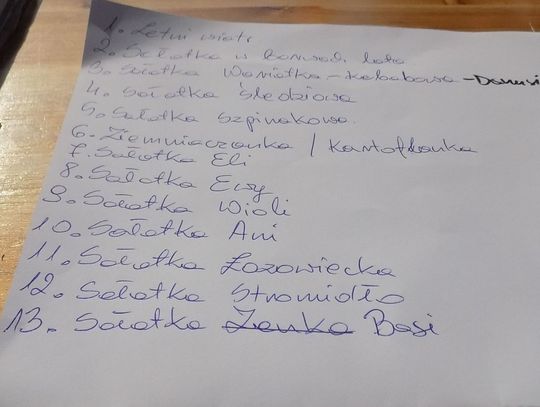 1. Letni wiatr
2. Sałatka w barwach lata
3. Sałatka Warstwa - kebabowa - Danusi
4. Sałatka śledziowa
5. Sałatka szpinakowa.
6. Ziemniaczanka / Kartoflanka
7. Sałatka Eli
8. Sałatka Ewy
9. Sałatka Wioli
10. Sałatka Ani
11. Sałatka Łazowiecka
12. Sałatka Stromidło
13. Sałatka Zenka Basi